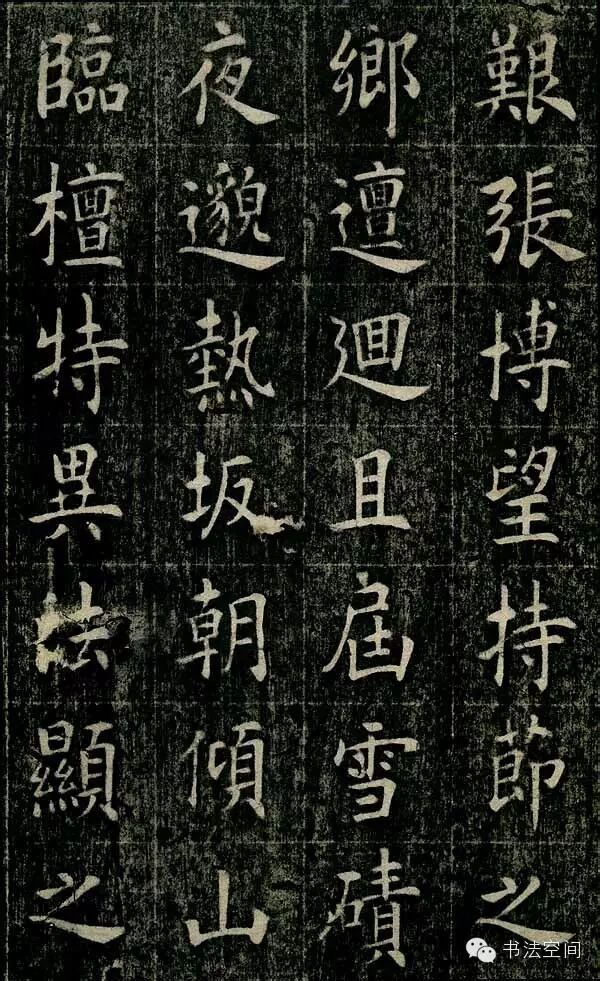 艱張博望持節之
鄉邅迴且屆雪磧
夜邈熱坂朝傾山
臨檀特異法顯之
书法空间